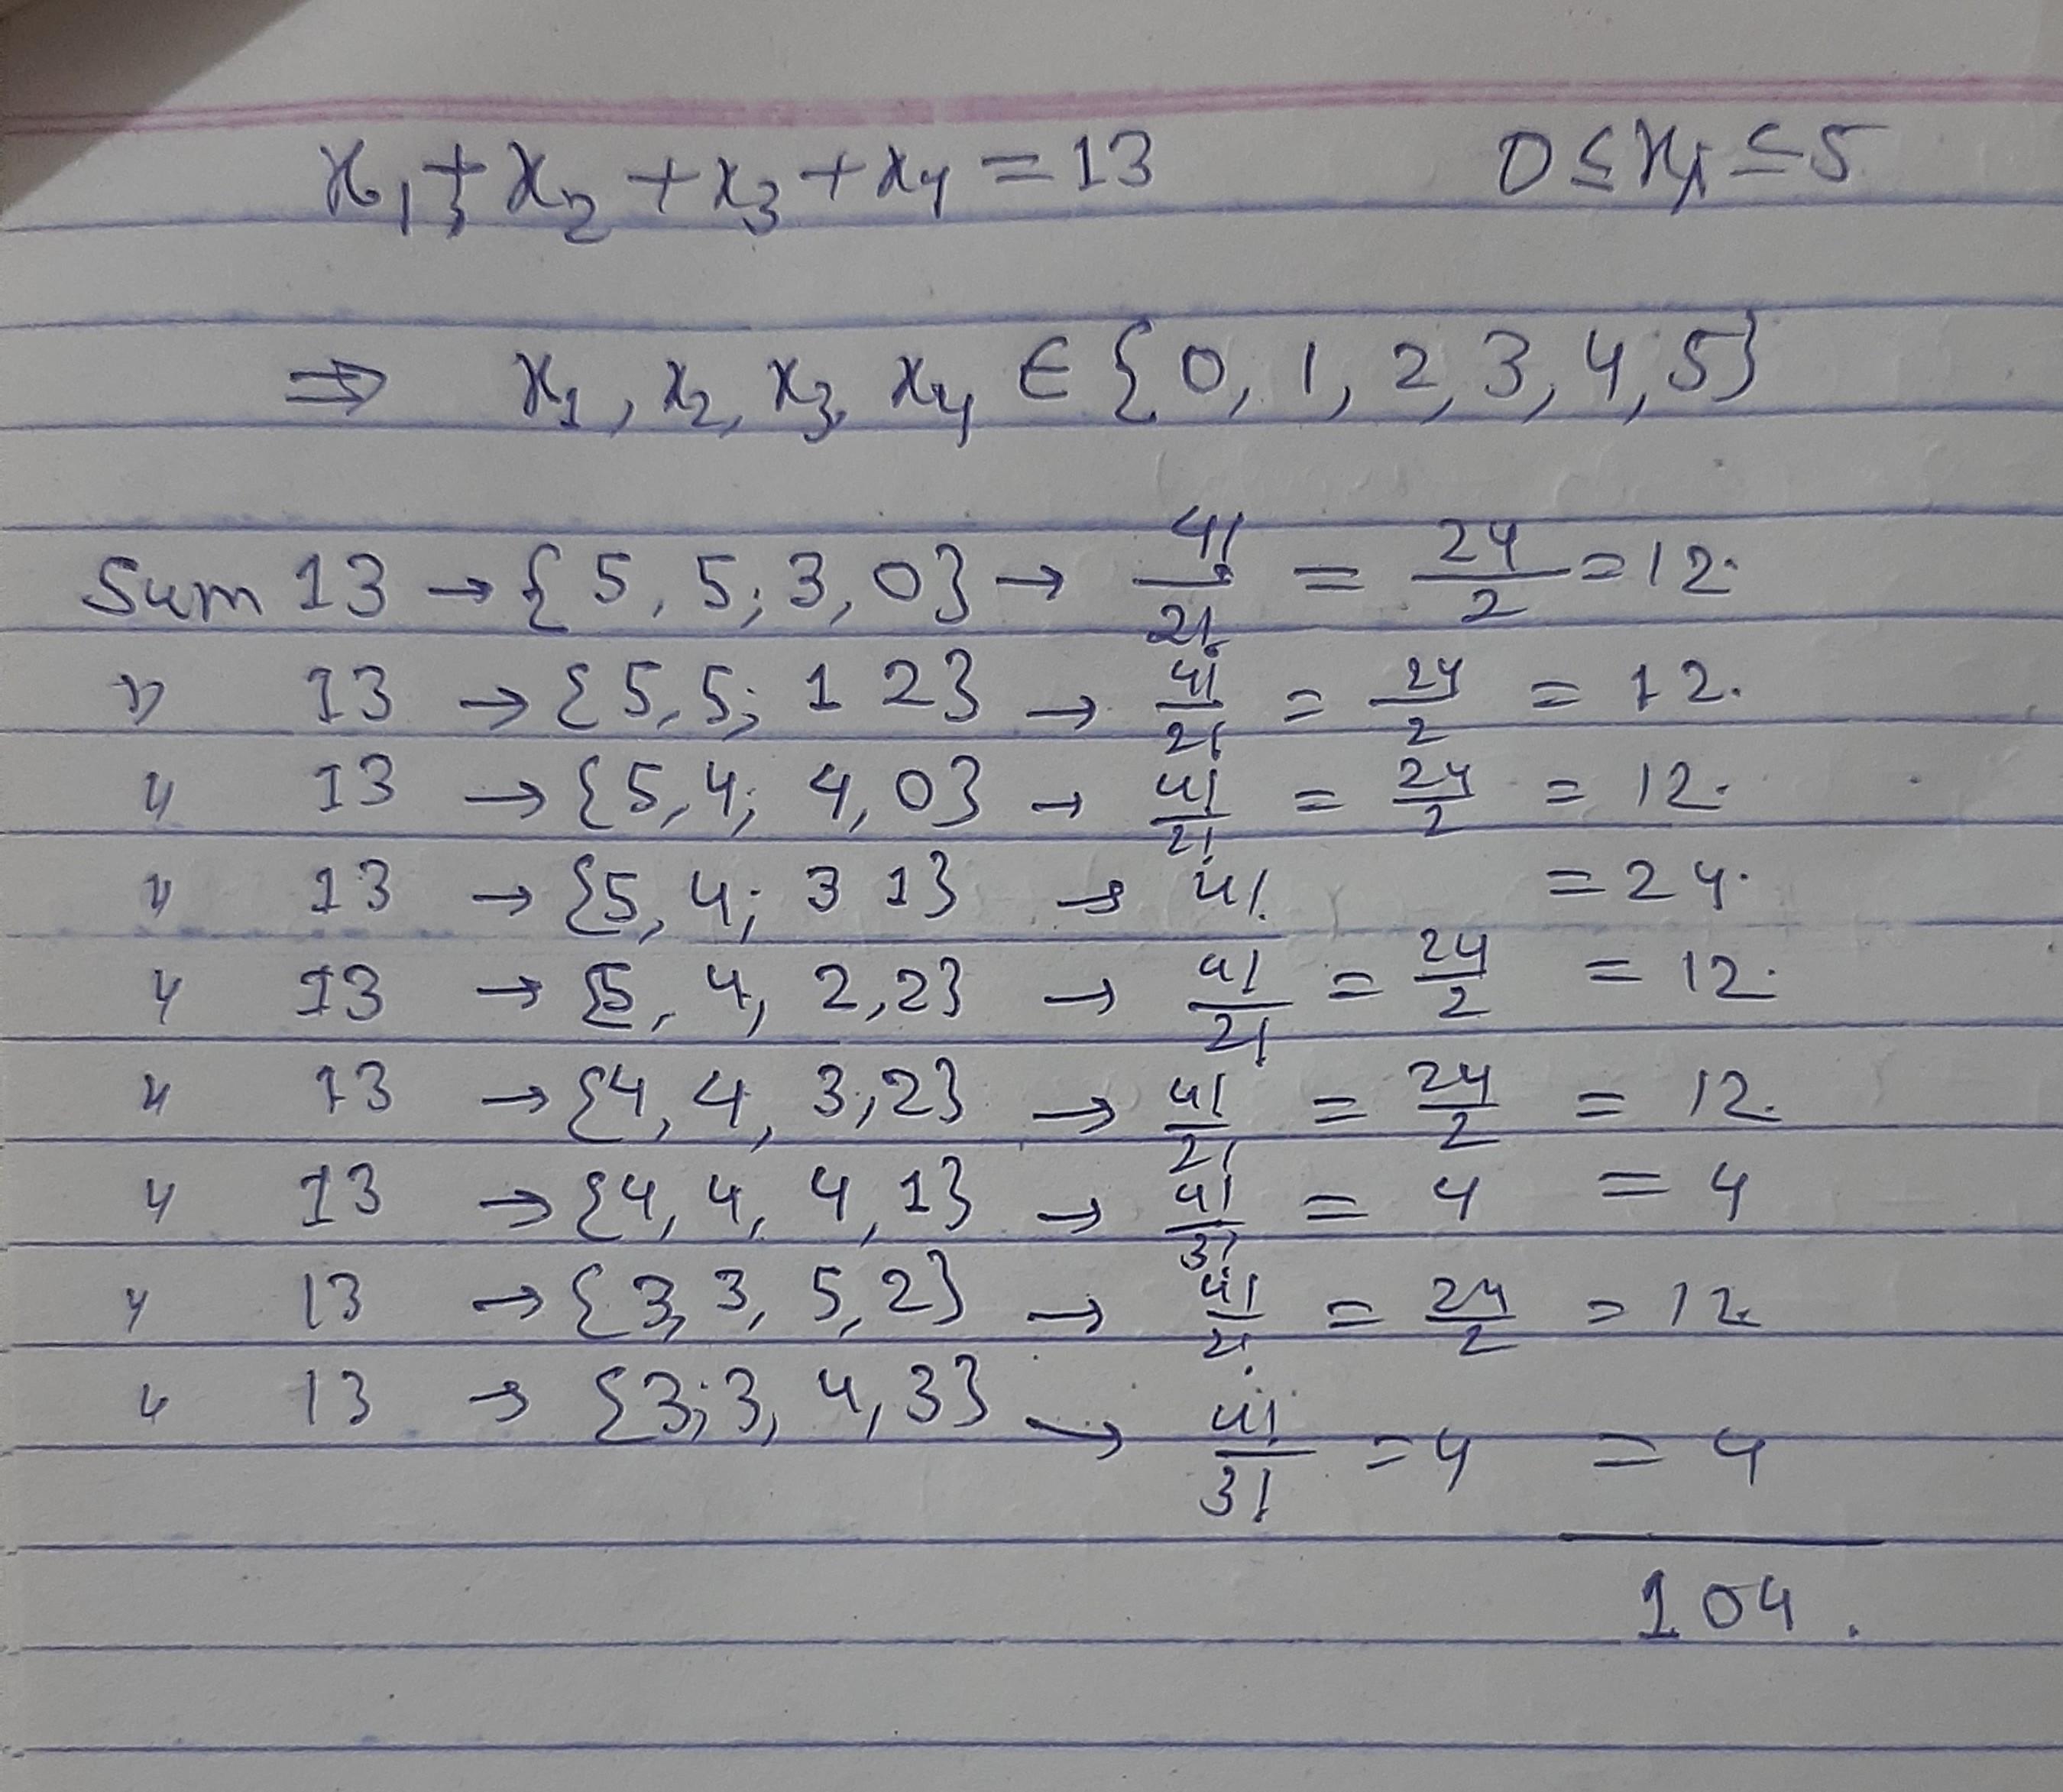 x₁ + x₂ + x₃ + x₄ = 13 0 ≤ xᵢ ≤ 5
⇒ x₁, x₂, x₃, x₄ ∈ {0, 1, 2, 3, 4, 5}
Sum 13 → {5, 5; 3, 0} → 4!/2! = 24/2 = 12.
" 13 → {5, 5; 1 2} → 4!/2! = 24/2 = 12.
" 13 → {5, 4; 4, 0} → 4!/2! = 24/2 = 12.
" 13 → {5, 4; 3 1} → 4! = 24.
" 13 → {5, 4, 2, 2} → 4!/2! = 24/2 = 12.
" 13 → {4, 4, 3, 2} → 4!/2! = 24/2 = 12.
" 13 → {4, 4, 4, 1} → 4!/3! = 4 = 4
" 13 → {3, 3, 5, 2} → 4!/2! = 24/2 = 12.
" 13 → {3; 3, 4, 3} → 4!/3! = 4 = 4
104.